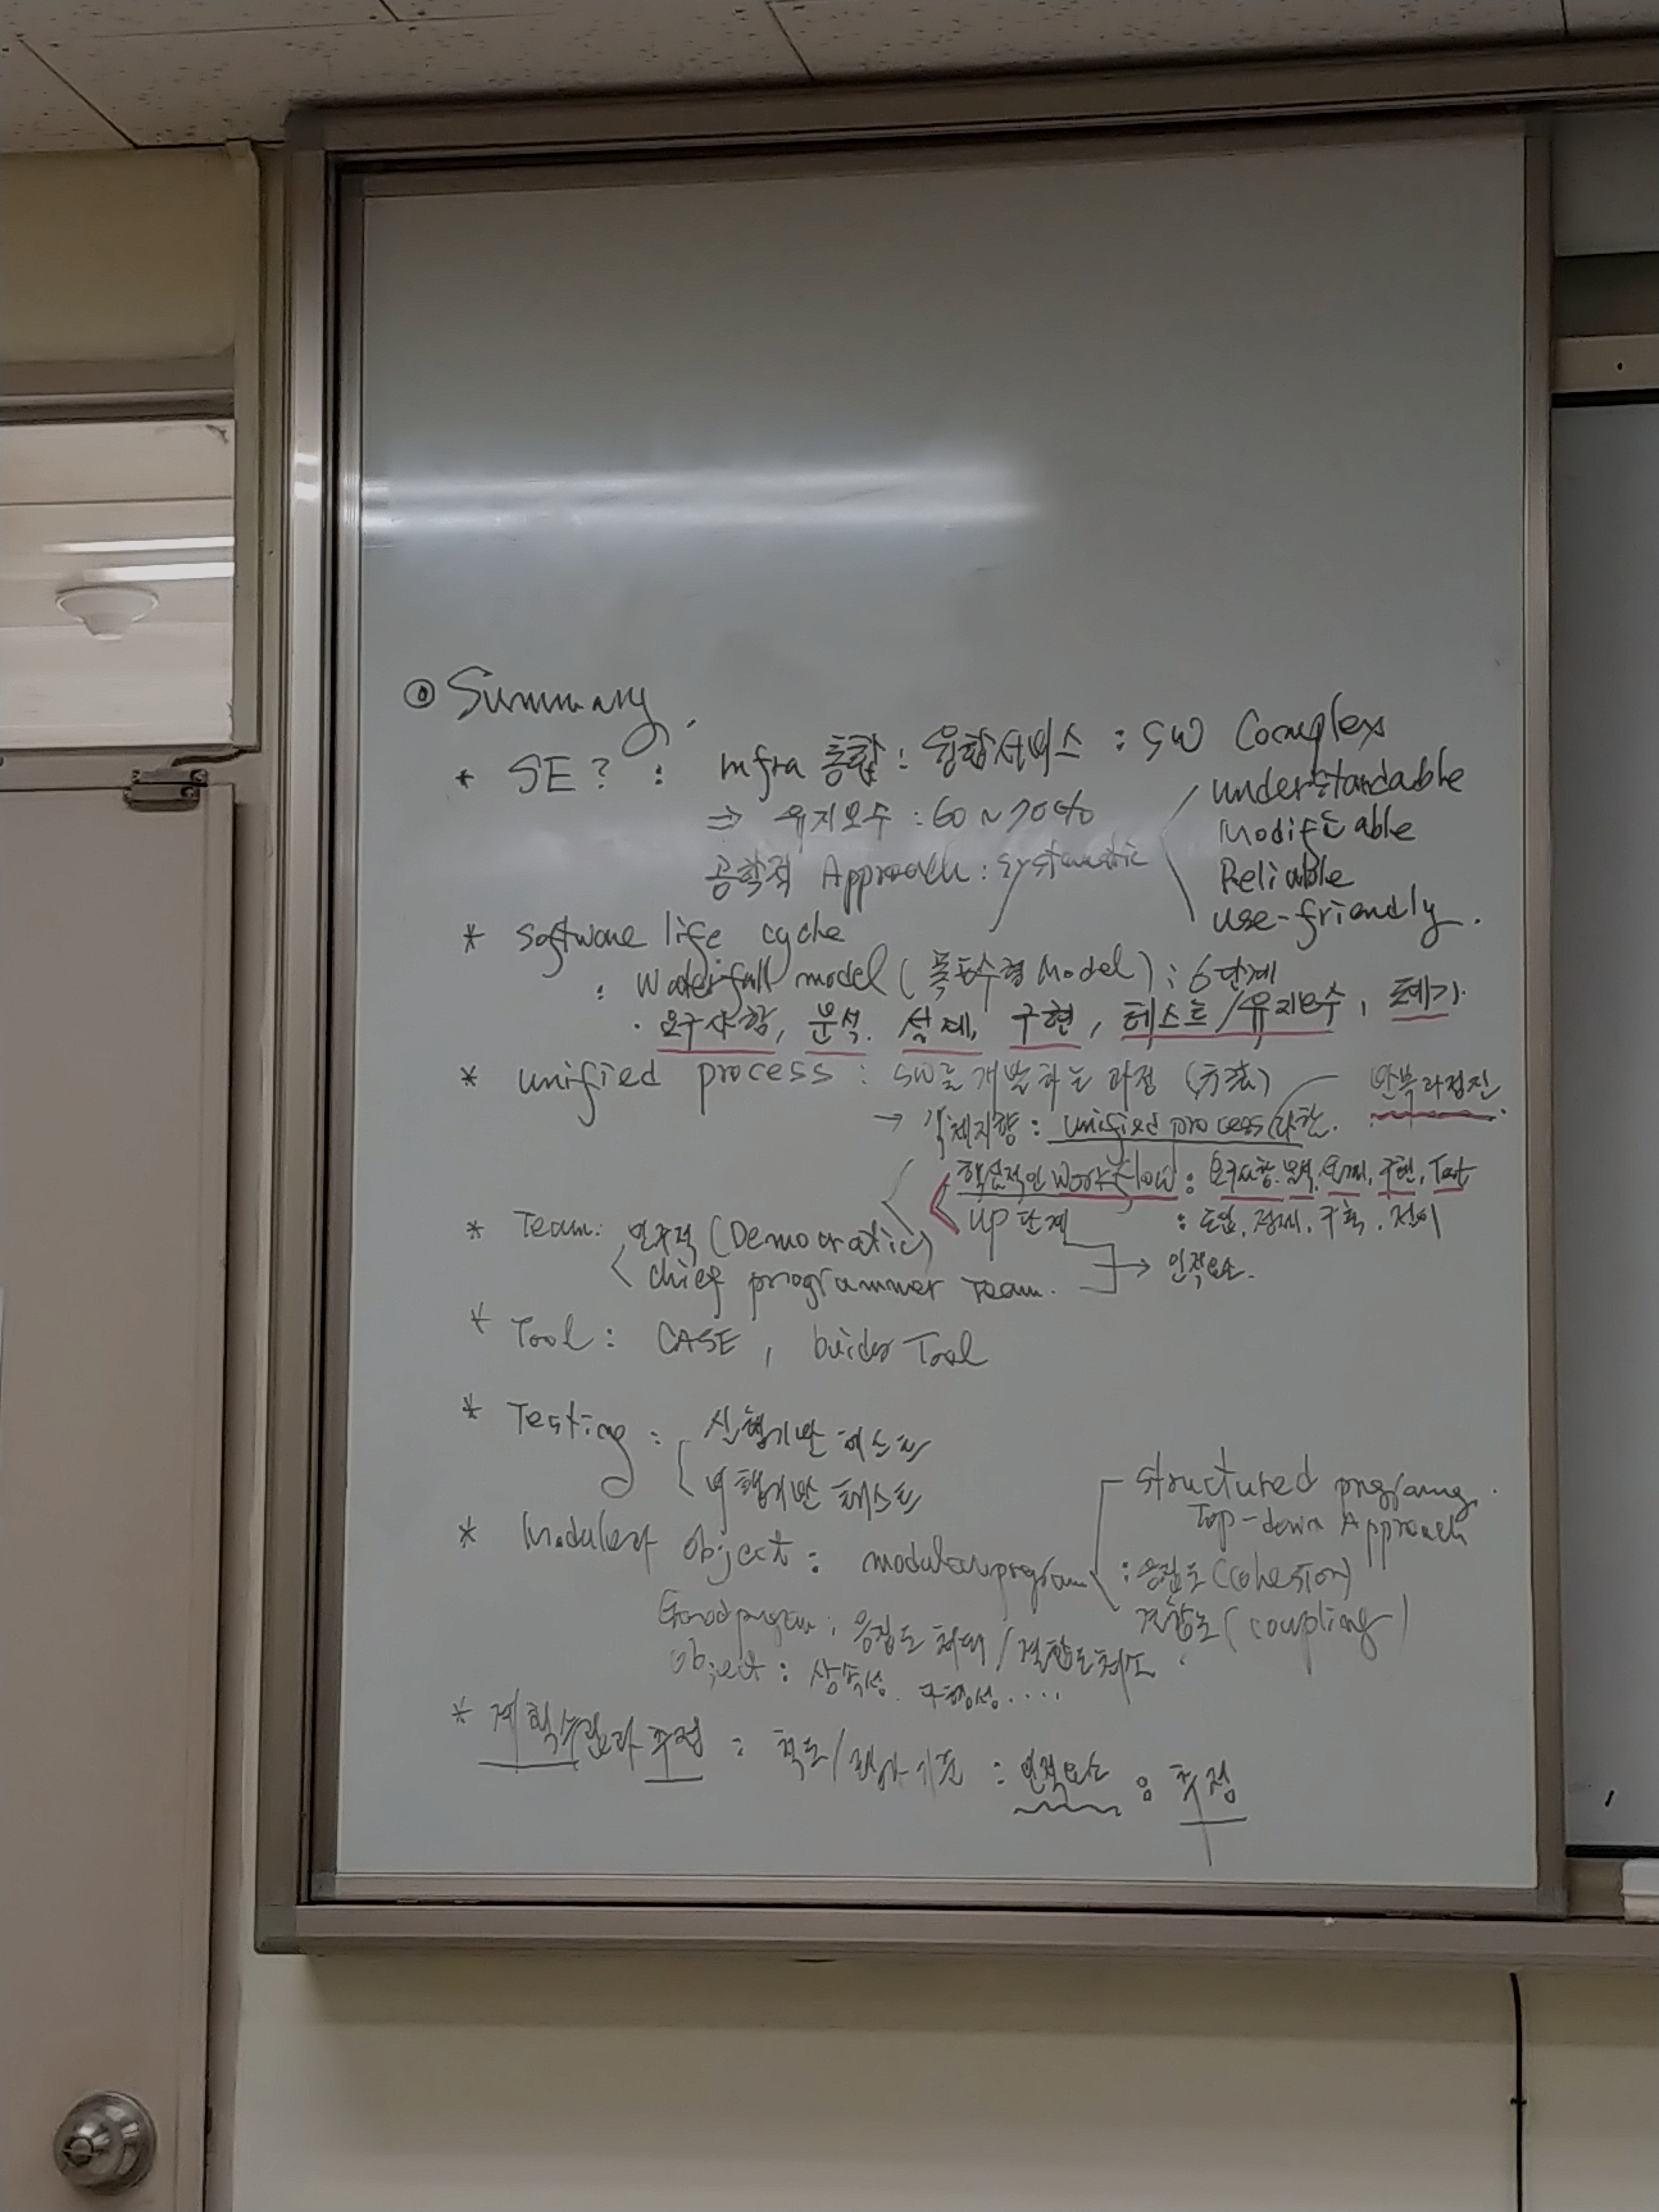 ⊙ Summary.
* SE? : infra 통합 : 융합서비스 : SW Complex
⇒ 유지보수 : 60 ~ 70%
공학적 Approach : systematic
understandable
Modifiable
Reliable
use-friendly.
* software life cycle
: Waterfall model (폭포수형 Model) : 6단계
· 요구사항, 분석. 설계, 구현, 테스트/유지보수, 폐기.
* unified process : SW를 개발하는 과정 (方法)
→ 객체지향 : unified process
핵심적인 workflow : 요구사항. 분석. 설계, 구현, Test
UP 단계 : 도입. 정제. 구축. 전이
* Team : 민주적 (Democratic)
chief programmer Team.
→ 인적요소.
* Tool : CASE, Tool
* Testing : 실행기반 테스트
비실행기반 테스트
* object : modular program
structured
Top-down Approach
: 응집도 (cohesion)
결합도 (coupling)
Good : 응집도 최대 / 결합도 최소.
object : 상속성. ....
* 계획수립과 추정 : 척도/평가기준 : 인적요소 : 추정